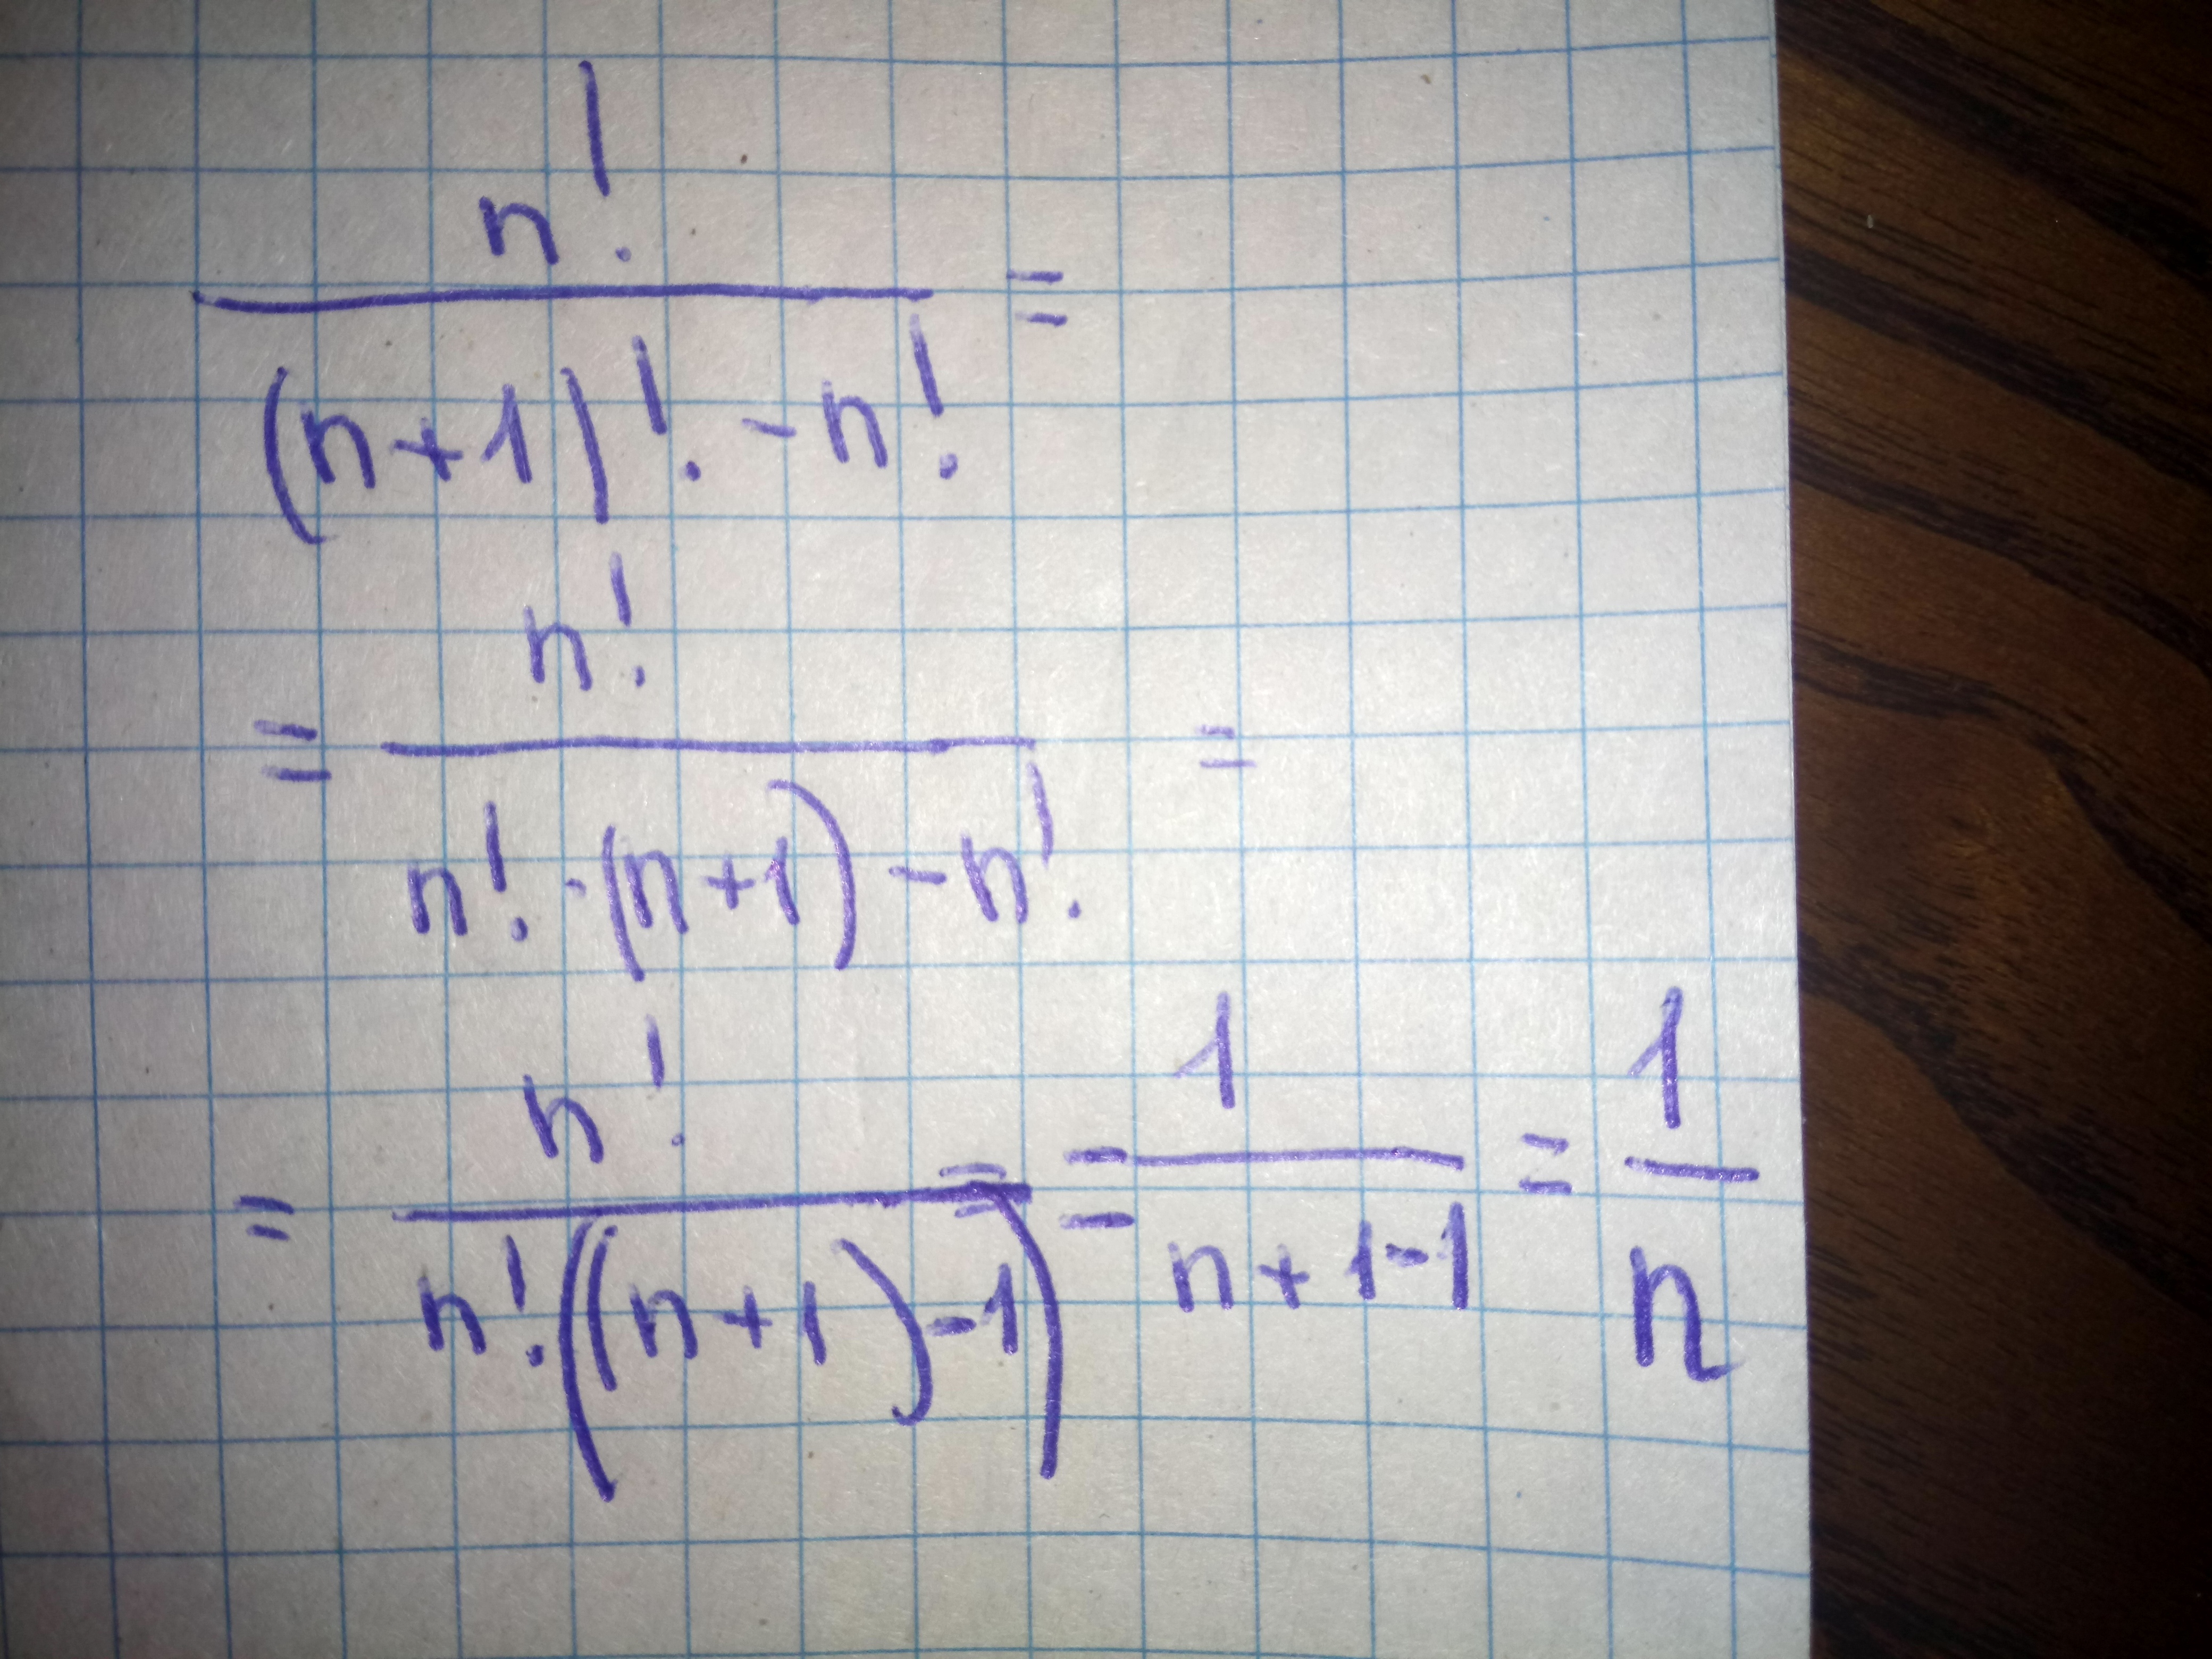 n! / ((n+1)! - n!) =
= n! / (n! · (n+1) - n!) =
= n! / (n!((n+1)-1)) = 1 / (n+1-1) = 1/n